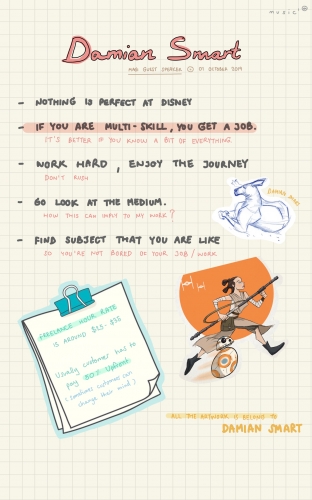 music'@
Damian Smart
MAB GUEST SPEAKER 01 OCTOBER 2019
- NOTHING IS PERFECT AT DISNEY
- IF YOU ARE MULTI-SKILL, YOU GET A JOB.
IT'S BETTER IF YOU KNOW A BIT OF EVERYTHING
- WORK HARD, ENJOY THE JOURNEY
DON'T RUSH
- GO LOOK AT THE MEDIUM.
HOW THIS CAN IMPLY TO MY WORK?
- FIND SUBJECT THAT YOU ARE LIKE
SO YOU'RE NOT BORED OF YOUR JOB/WORK
DAMIAN SMART
FREELANCE HOUR RATE
IS AROUND
Usually customer has to
pay 50% Upfront
(sometimes customers can
change their mind)
ALL THE ARTWORK IS BELONG TO
DAMIAN SMART